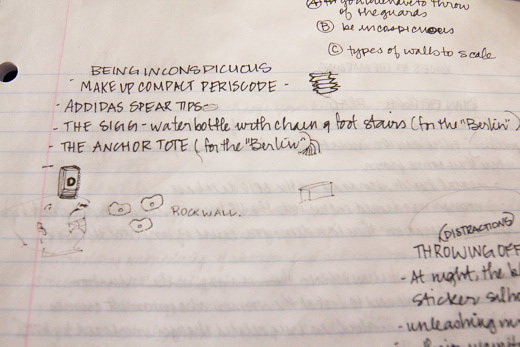 you have to throw
of the guards
Ⓑ be inconspicuous
Ⓒ types of walls to scale
BEING INCONSPICUOUS
- MAKE UP COMPACT PERISCODE -
- ADDIDAS SPEAR TIPS
- THE SIGG - water bottle with chain & foot stairs (for the "Berlin")
- THE ANCHOR TOTE (for the "Berlin")
D
ROCKWALL.
(DISTRACTIONS)
THROWING OFF
- At night, the b
sticker silho
- unleashing m